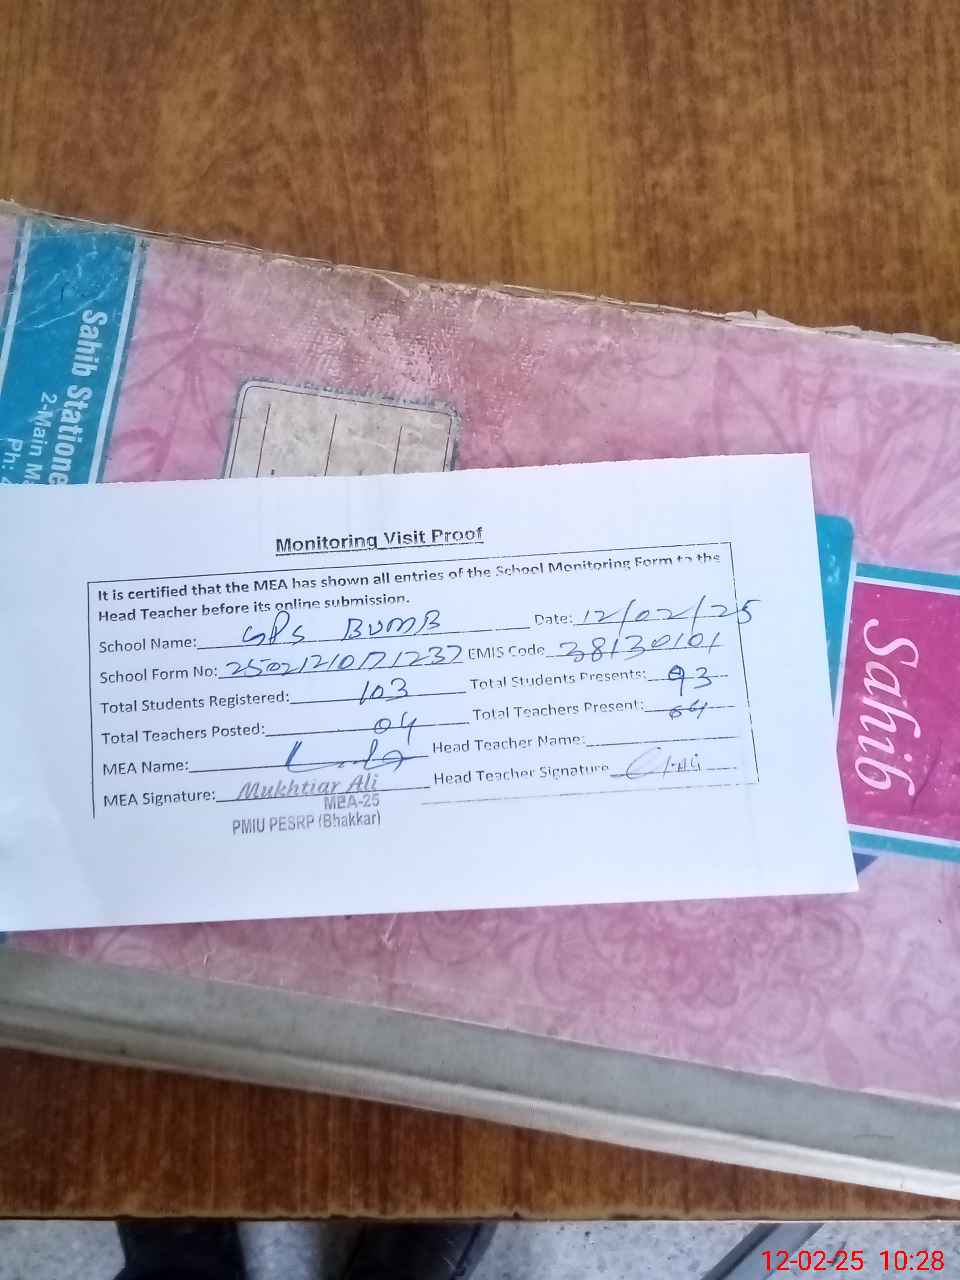 Sahib Statione
2-Main Ma
Ph:
Monitoring Visit Proof
It is certified that the MEA has shown all entries of the School Monitoring Form to the
Head Teacher before its online submission.
School Name: GPS BUMB Date: 12/02/25
School Form No: EMIS Code 38130101
Total Students Registered: 103 Total Students Presents: 93
Total Teachers Posted: 04 Total Teachers Present: 04
MEA Name: Head Teacher Name:
MEA Signature: Mukhtiar Ali Head Teacher Signature
MEA-25
PMIU PESRP (Bhakkar)
Sahib
12-02-25 10:28